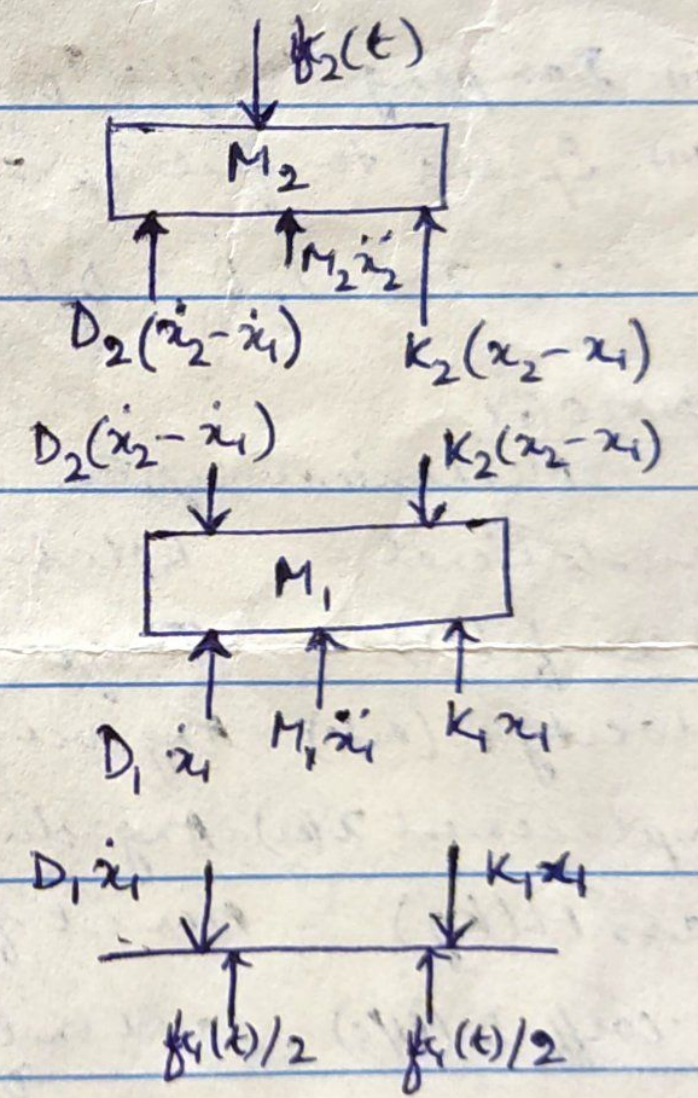 f₂(t)
M₂
M₂ẍ₂
D₂(ẋ₂-ẋ₁) K₂(x₂-x₁)
D₂(ẋ₂-ẋ₁) K₂(x₂-x₁)
M₁
D₁ẋ₁ M₁ẍ₁ K₁x₁
D₁ẋ₁ K₁x₁
f₁(t)/2 f₁(t)/2